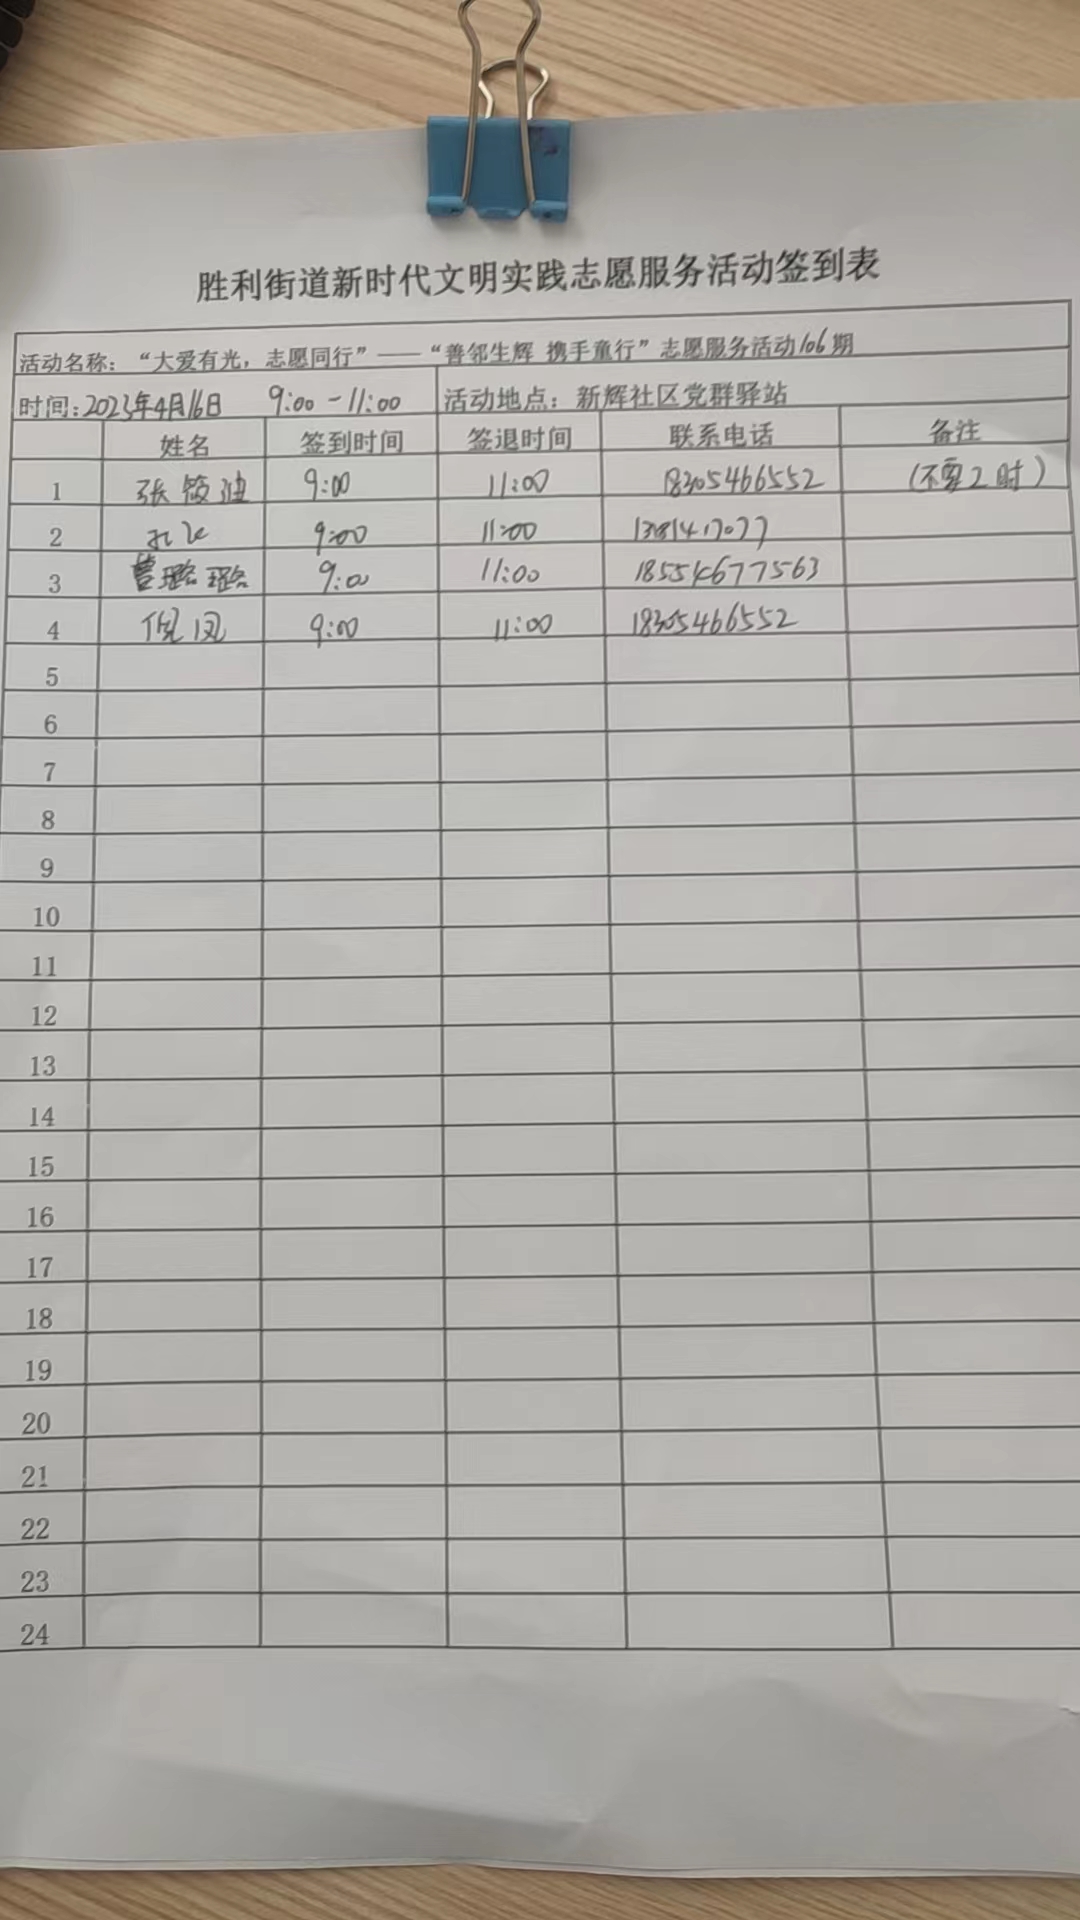 胜利街道新时代文明实践志愿服务活动签到表
活动名称：“大爱有光，志愿同行”——“善邻生辉 携手童行”志愿服务活动106期
时间：2023年4月16日 9:00-11:00 活动地点：新辉社区党群驿站
姓名 签到时间 签退时间 联系电话 备注
1 张筱迪 9:00 11:00 18305466552 (不要2时)
2 9:00 11:00
3 曹璐璐 9:00 11:00 18554677563
4 倪凤 9:00 11:00 18305466552
5
6
7
8
9
10
11
12
13
14
15
16
17
18
19
20
21
22
23
24